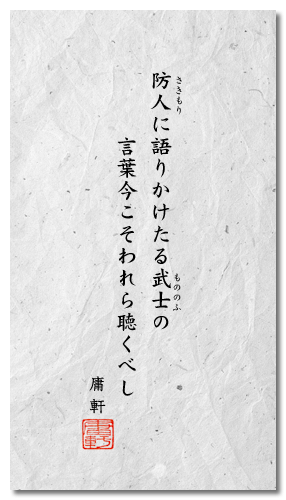 防人に語りかけたる武士の
さきもり
もののふ
言葉今こそわれら聴くべし
庸軒
庸軒